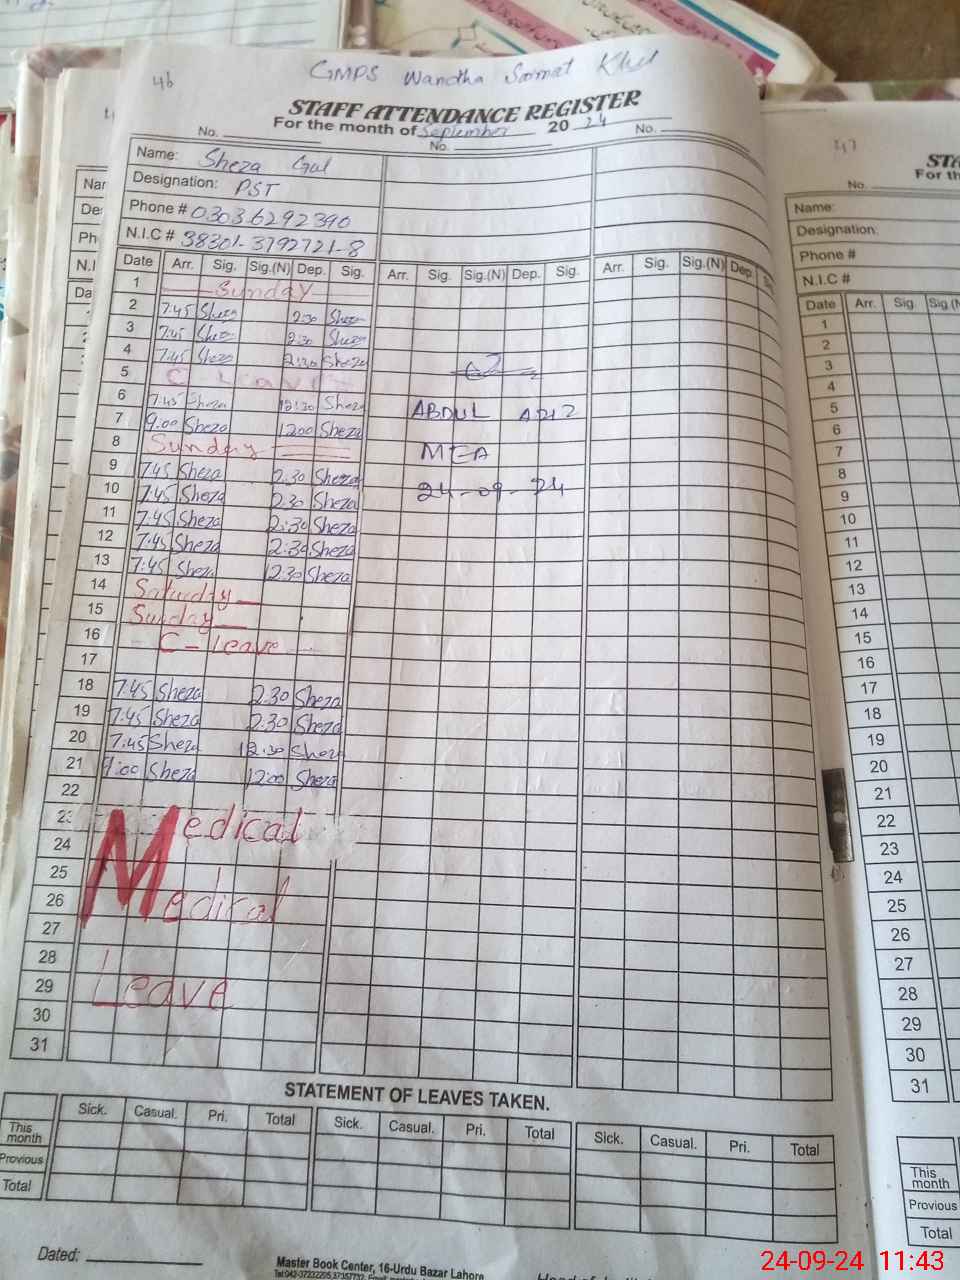 46
GMPS Wandha Samat Khel
STAFF ATTENDANCE REGISTER
For the month of September 2024
No. No. No.
Name: Sheza Gul
Designation: PST
Phone # 03036292390
N.I.C # 38301-3792721-8
Date Arr. Sig. Sig.(N) Dep. Sig. Arr. Sig. Sig.(N) Dep. Sig. Arr. Sig. Sig.(N) Dep.
1 Sunday
2 7:45 Sheza 2:30 Sheza
3 7:45 Sheza 2:30 Sheza
4 7:45 Sheza 2:30 Sheza
5 C - Leave
6 7:45 Sheza 12:30 Sheza ABDUL AZIZ
7 9:00 Sheza 12:00 Sheza
8 Sunday MEA
9 7:45 Sheza 2:30 Sheza
10 7:45 Sheza 2:30 Sheza 24-09-24
11 7:45 Sheza 2:30 Sheza
12 7:45 Sheza 2:30 Sheza
13 7:45 Sheza 12:30 Sheza
14 Saturday
15 Sunday
16 C - Leave
17
18 7:45 Sheza 2:30 Sheza
19 7:45 Sheza 2:30 Sheza
20 7:45 Sheza 12:30 Sheza
21 9:00 Sheza 12:00 Sheza
22
23 Medical
24
25
26 Medical
27
28
29 Leave
30
31
STATEMENT OF LEAVES TAKEN.
Sick. Casual. Pri. Total Sick. Casual. Pri. Total Sick. Casual. Pri. Total
This month
Previous
Total
Dated:
Master Book Center, 16-Urdu Bazar Lahore
47
No.
For th
Name:
Designation:
Phone #
N.I.C #
Date Arr. Sig. Sig.(N
1
2
3
4
5
6
7
8
9
10
11
12
13
14
15
16
17
18
19
20
21
22
23
24
25
26
27
28
29
30
31
This month
Previous
Total
24-09-24 11:43